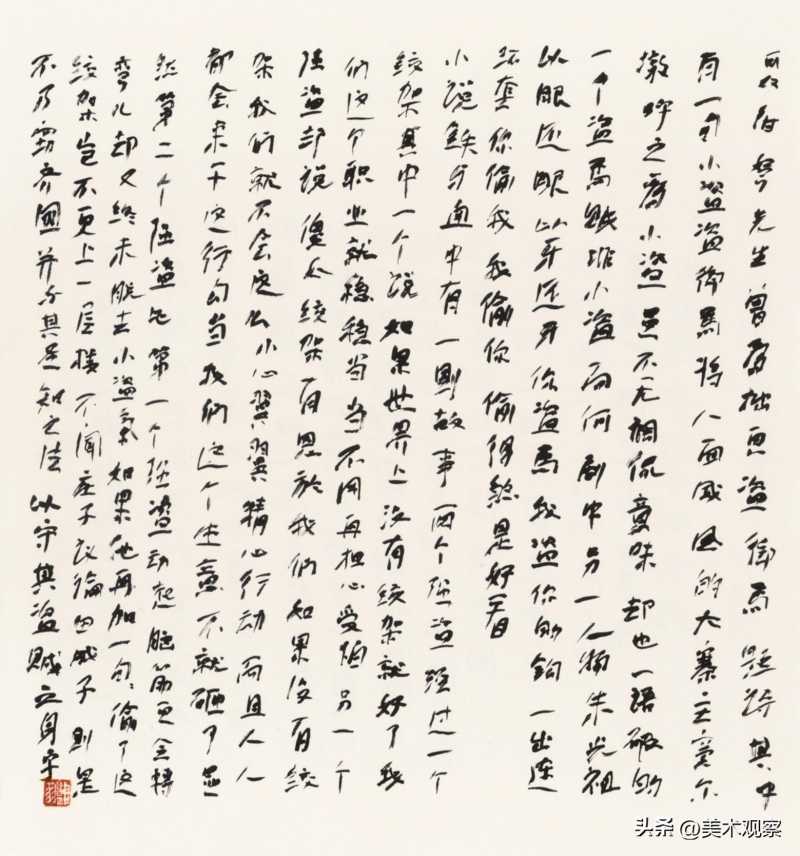 聂绀弩先生曾为拙画盗御马题诗其中
有一句小盗盗御马将人面威风的大寨主窦尔
墩呼之为小盗虽不无调侃意味却也一语破的
一个盗马贼非小盗而何剧中另一人物朱光祖
以眼还眼以牙还牙你盗马我盗你的钩一出连
环套你偷我我偷你偷得煞是好看
小说中有一则故事两个强盗路过一个
绞架其中一个说如果世界上没有绞架就好了我
们这个职业就稳稳当当不用再担心受怕另一个
强盗却说傻瓜绞架有恩於我们如果没有绞
架我们就不会这么小心翼翼精心行动而且人人
都会来干这行勾当我们这个生意不就砸了显
然第二个强盗比第一个强盗动起脑筋更会转
弯儿却又终未脱去小盗气如果他再加一句偷了这
绞架岂不更上一层楼不闻庄子议论田成子则是
不乃窃齐国并与其圣知之法以守其盗贼之身乎
头条 @美术观察